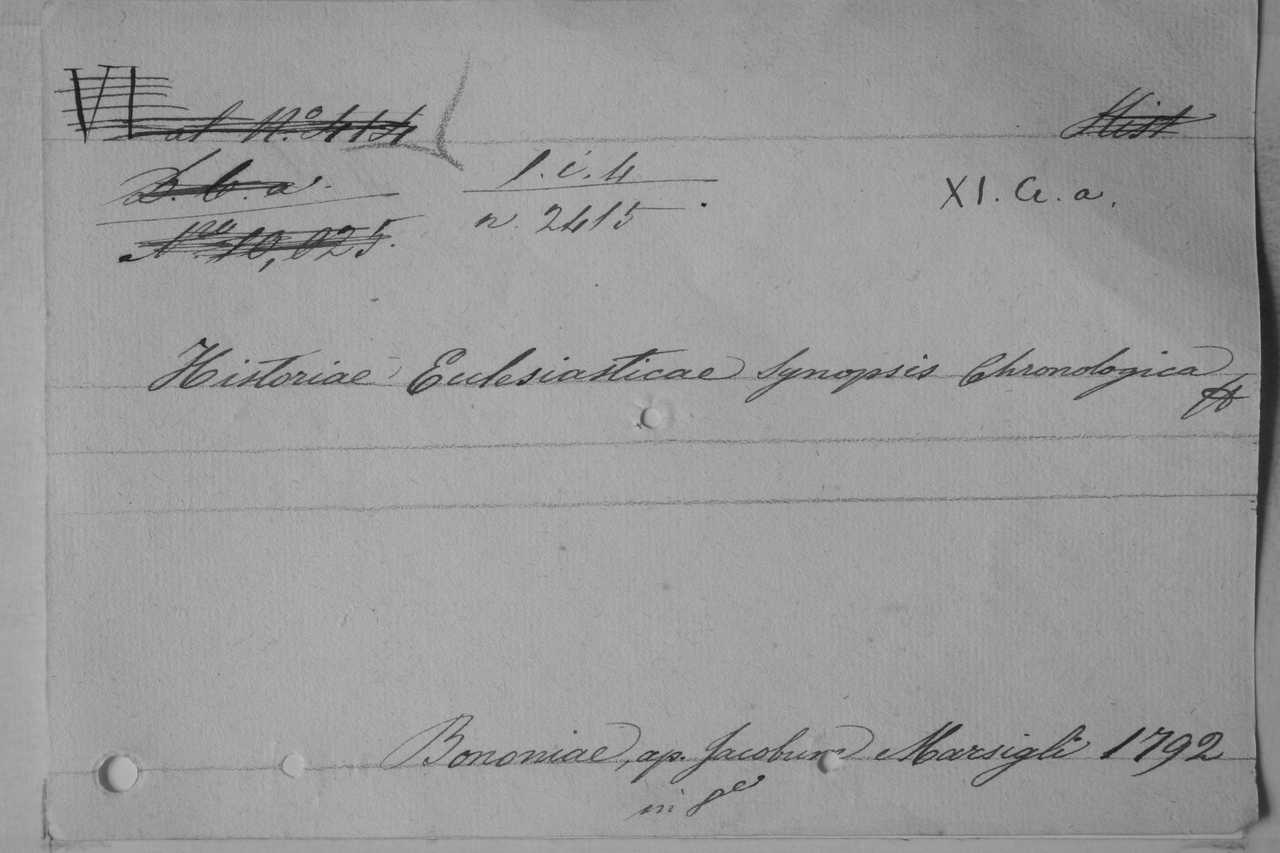 VI
at Nº 414 Hist
B. b. a. l. i. 4 XI. A. a.
Nro 10,025. n. 2415
Historiae Ecclesiasticae Synopsis Chronologica
Bononiae, ap. Jacobum Marsigli 1792
in 8º